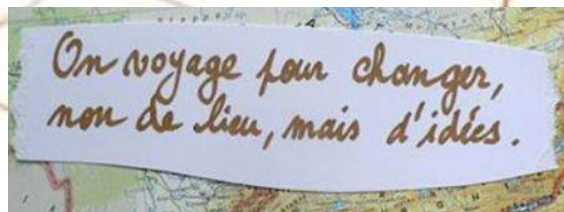 On voyage pour changer,
non de lieu, mais d'idées.